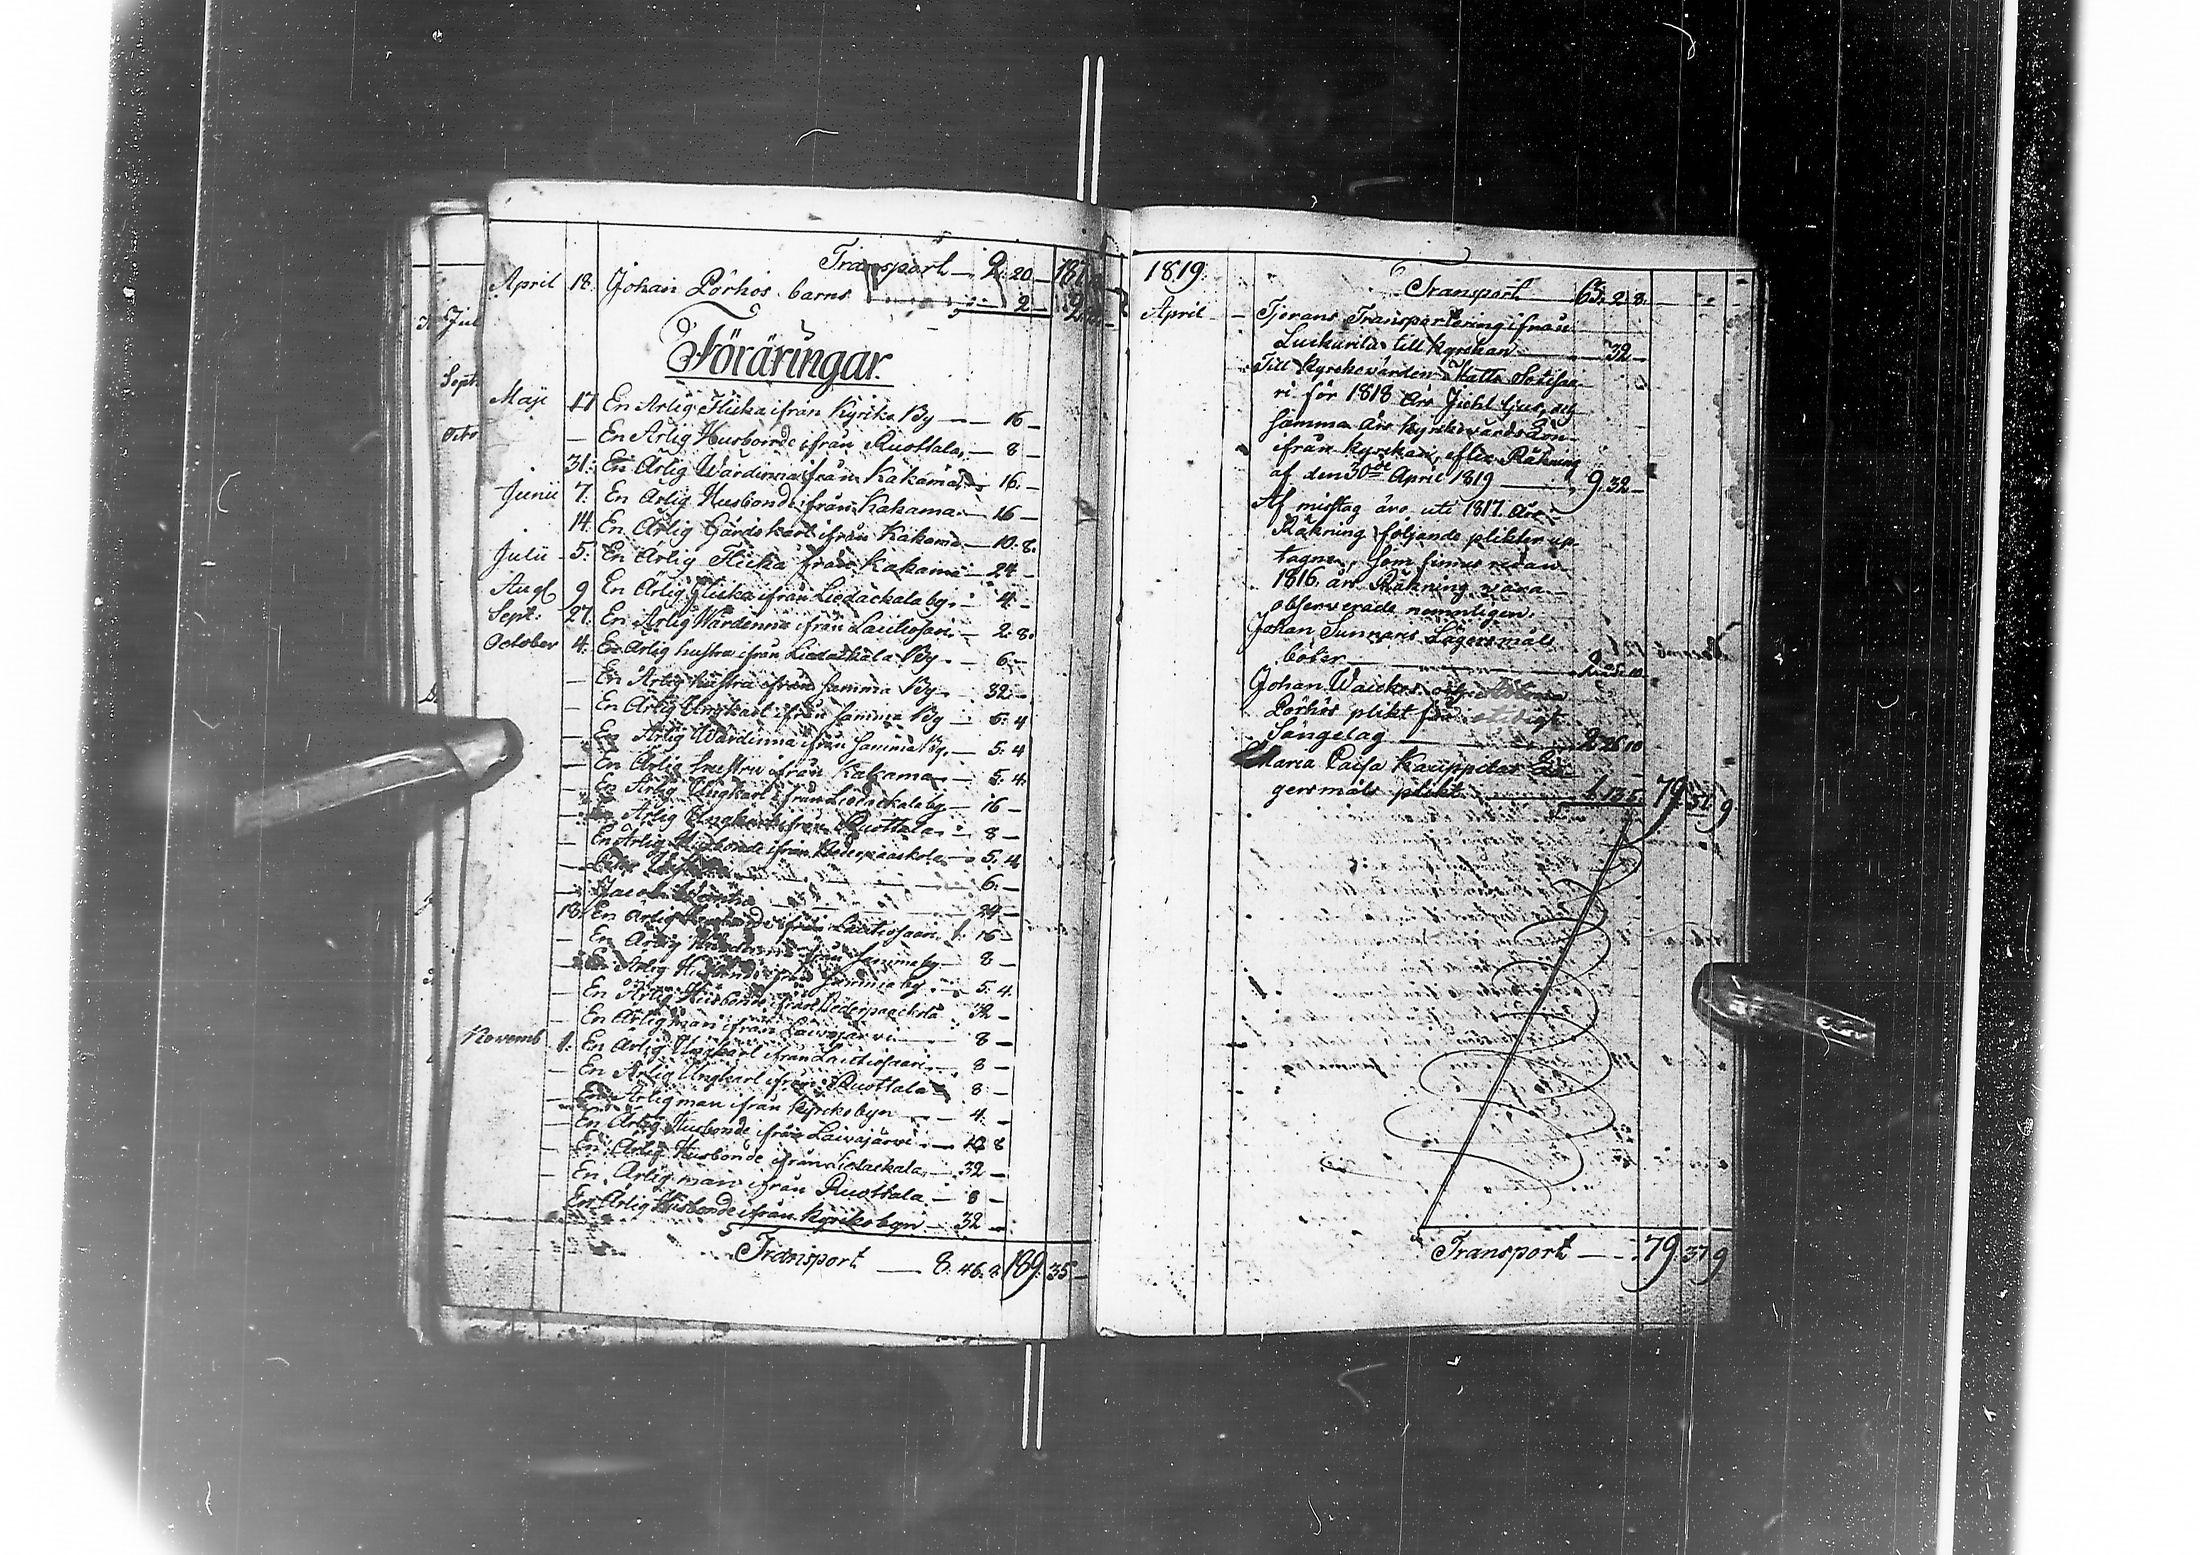 Transport — 2. 20 — 187
April 18. Johan Pörhös barns 2 —
Föräringar.
Maji 17 En Ärlig Flicka ifrån Kyrko By — 16 —
— En Ärlig Husbonde ifrån Ruottala — 8 —
31. En Ärlig Wärdinna ifrån Kakama — 16. —
Junii 7. En Ärlig Husbonde ifrån Kakama — 16 —
14. En Ärlig Gårdskarl ifrån Kakama — 10. 8.
Julii 5. En Ärlig Flicka ifrån Kakama — 24 —
Aug. 9 En Ärlig Flicka ifrån Liedackala by. — 4. —
Sept. 27. En Ärlig Wärdinna ifrån Lautiosari — 2. 8.
October 4. En Ärlig hustru ifrån Liedackala By. — 6. —
— En Ärlig hustru ifrån samma By — 32. —
— En Ärlig Ungkarl ifrån samma By — 5. 4
— En Ärlig Wärdinna ifrån samma By. — 5. 4
— En Ärlig hustru ifrån Kakama — 5. 4.
— En Ärlig Ungkarl ifrån Liedackala by — 16 —
— En Ärlig Ungkarl ifrån Ruottala — 8 —
— En Ärlig Husbonde ifrån Nederpaackola — 5. 4.
— 6. —
— Jacob — 24 —
18. En Ärlig ifrån Lautiosaari — 16 —
— En Ärlig Wärdinna ifrån samma by — 8 —
— En Ärlig Husbonde ifrån samma by — 5. 4.
— En Ärlig Husbonde ifrån Nederpaackola 32 —
— En Ärlig man ifrån Laivajärvi — 8 —
Novemb. 1. En Ärlig Ungkarl ifrån Lautiosaari — 8 —
— En Ärlig Ungkarl ifrån Ruottala — 8 —
— En Ärlig man ifrån Kyrkobyn — 4. —
— En Ärlig Husbonde ifrån Laivajärvi — 10 8
— En Ärlig Husbonde ifrån Liedackala — 32 —
— En Ärlig man ifrån Ruottala — 8 —
En Ärlig Husbonde ifrån Kyrkobyn — 32 —
Transport — 8. 46. 8. 189. 35 —
1819.
Transport 63. 2. 8.
April — Tjerans Transportering ifrån
till Kyrckan — 32 —
Till Kyrckovärden Matts
ri för 1818 års ljus, och
samma års Kyrkovärds Lön
ifrån Kyrckan, efter Räkning
af den 30de April 1819 — 9. 32 —
Af misstag äro uti 1817 års
Räkning följande plikter up
tagne, som finnas redan
1816 års Räkning vara
observerade nemnligen.
Johan Sunnaris Lägersmåls
böter
Johan och
Pörhös plikt för otidigt
Sängelag — 2. 26 10
Maria Caisa Kauppilas Lä
gersmåls plikt 1. 13. 5. 79. 37. 9.
Transport — 79. 37. 9